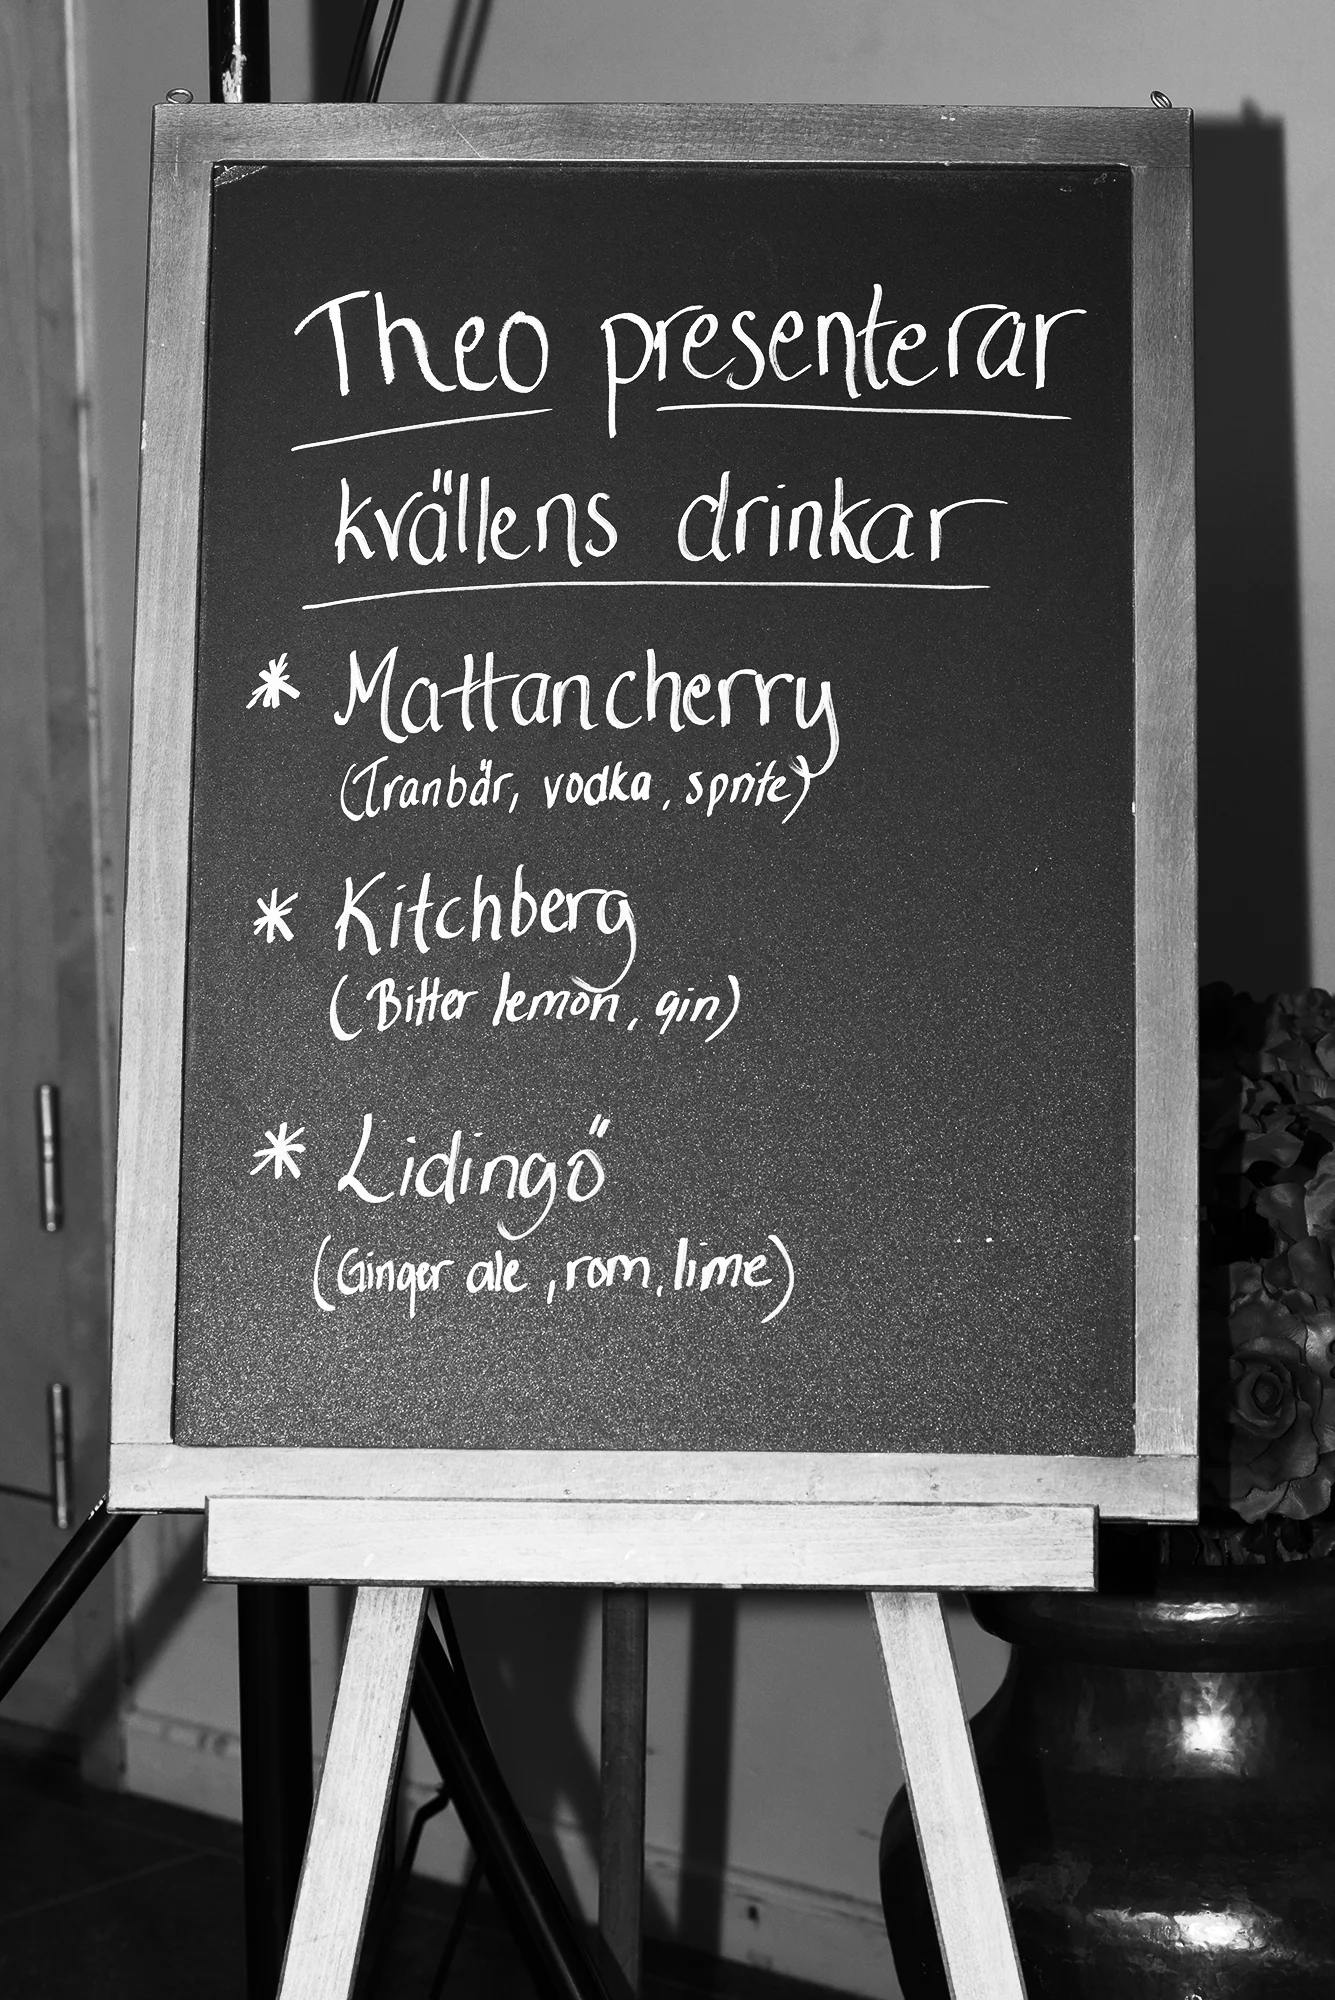 Theo presenterar
kvällens drinkar
* Mattancherry
(Tranbär, vodka, sprite)
* Kitchberg
(Bitter lemon, gin)
* Lidingö
(Ginger ale, rom, lime)